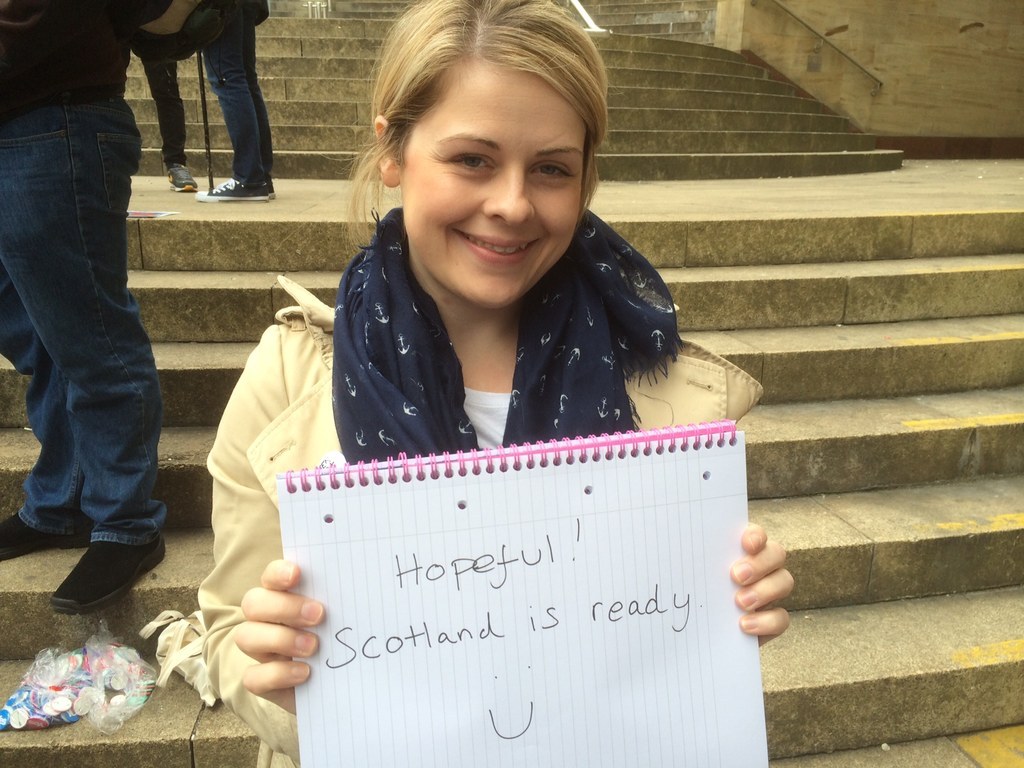 Hopeful!
Scotland is ready.